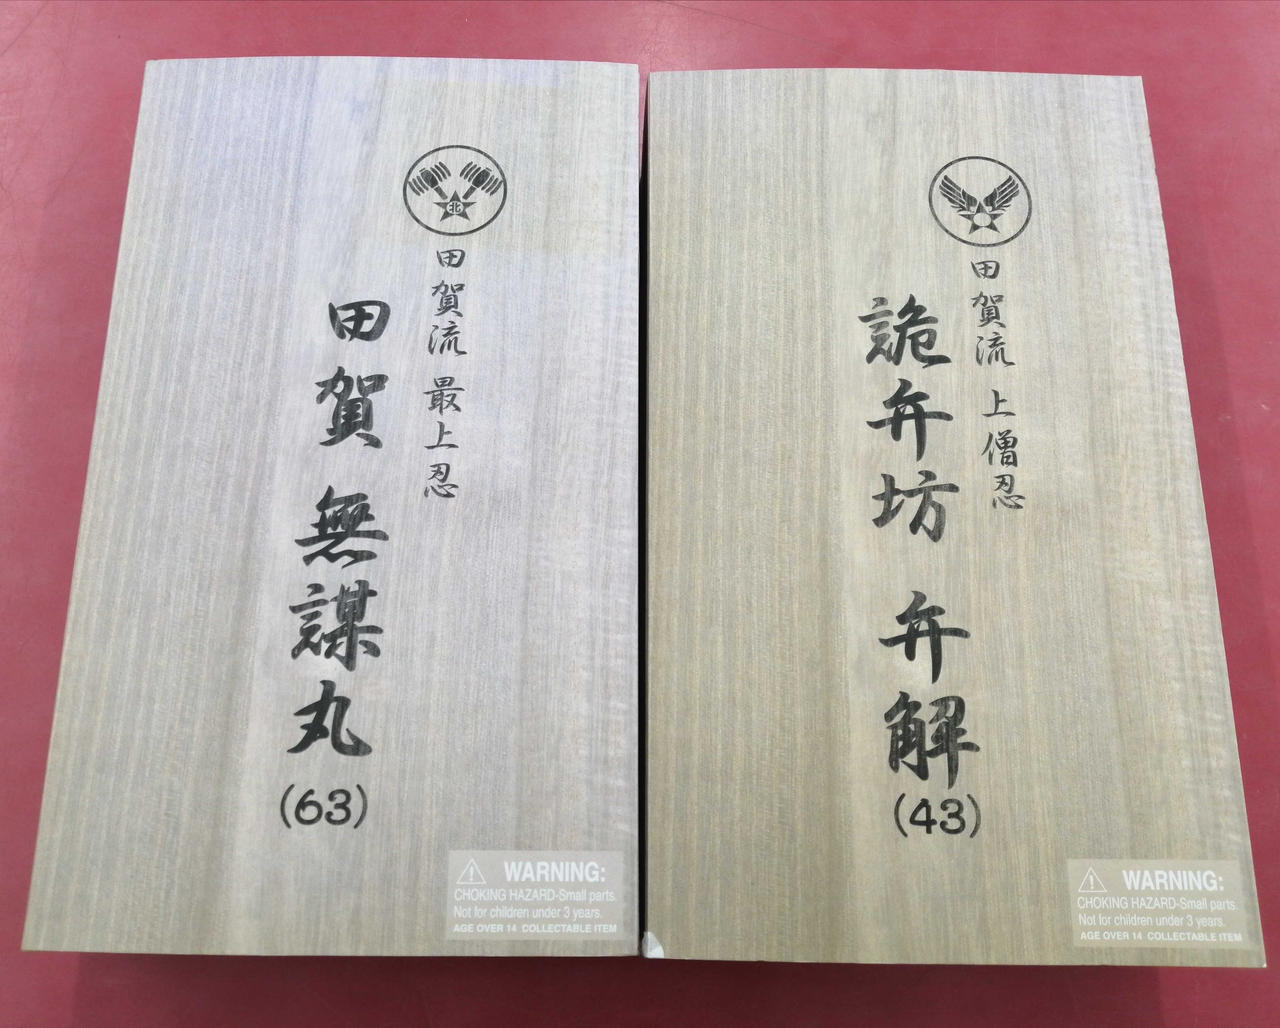 北
田賀流 最上忍
田賀 無謀丸
(63)
WARNING:
CHOKING HAZARD-Small parts.
Not for children under 3 years.
AGE OVER 14 COLLECTABLE ITEM
田賀流 上僧忍
詭弁坊 弁解
(43)
WARNING:
CHOKING HAZARD-Small parts.
Not for children under 3 years.
AGE OVER 14 COLLECTABLE ITEM